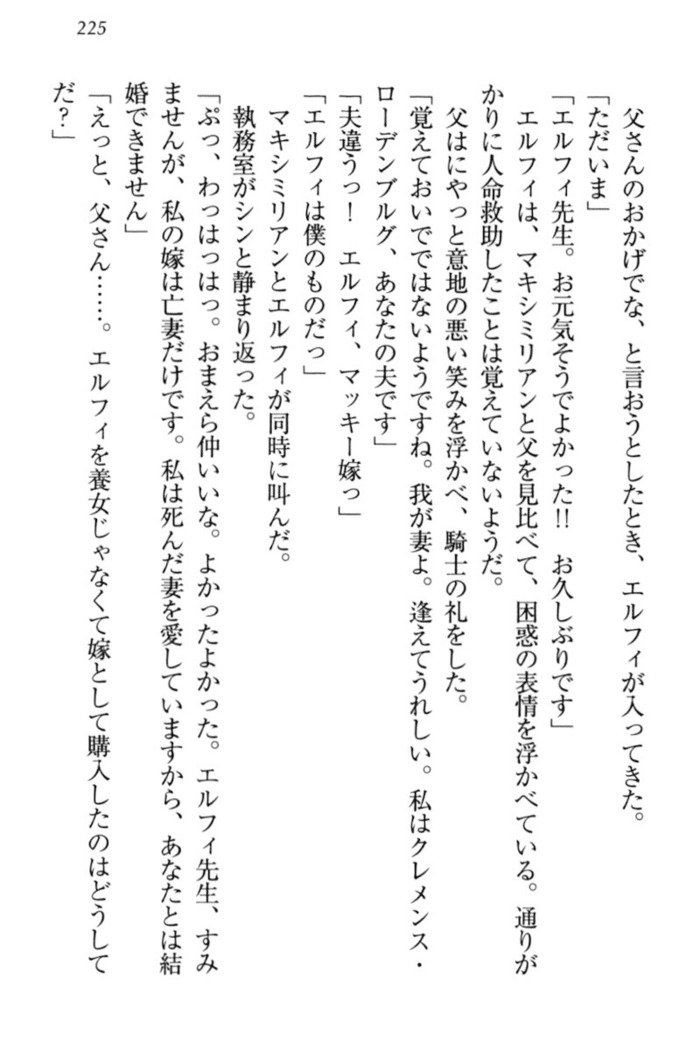 225
父さんのおかげでな、と言おうとしたとき、エルフィが入ってきた。
「ただいま」
「エルフィ先生。お元気そうでよかった!! お久しぶりです」
エルフィは、マキシミリアンと父を見比べて、困惑の表情を浮かべている。通りが
かりに人命救助したことは覚えていないようだ。
父はにやっと意地の悪い笑みを浮かべ、騎士の礼をした。
「覚えておいでではないようですね。我が妻よ。逢えてうれしい。私はクレメンス・
ローデンブルグ、あなたの夫です」
「夫違うっ! エルフィ、マッキー嫁っ」
「エルフィは僕のものだっ」
マキシミリアンとエルフィが同時に叫んだ。
執務室がシンと静まり返った。
「ぷっ、わっはっはっ。おまえら仲いいな。よかったよかった。エルフィ先生、すみ
ませんが、私の嫁は亡妻だけです。私は死んだ妻を愛していますから、あなたとは結
婚できません」
「えっと、父さん……。エルフィを養女じゃなくて嫁として購入したのはどうして
だ?」